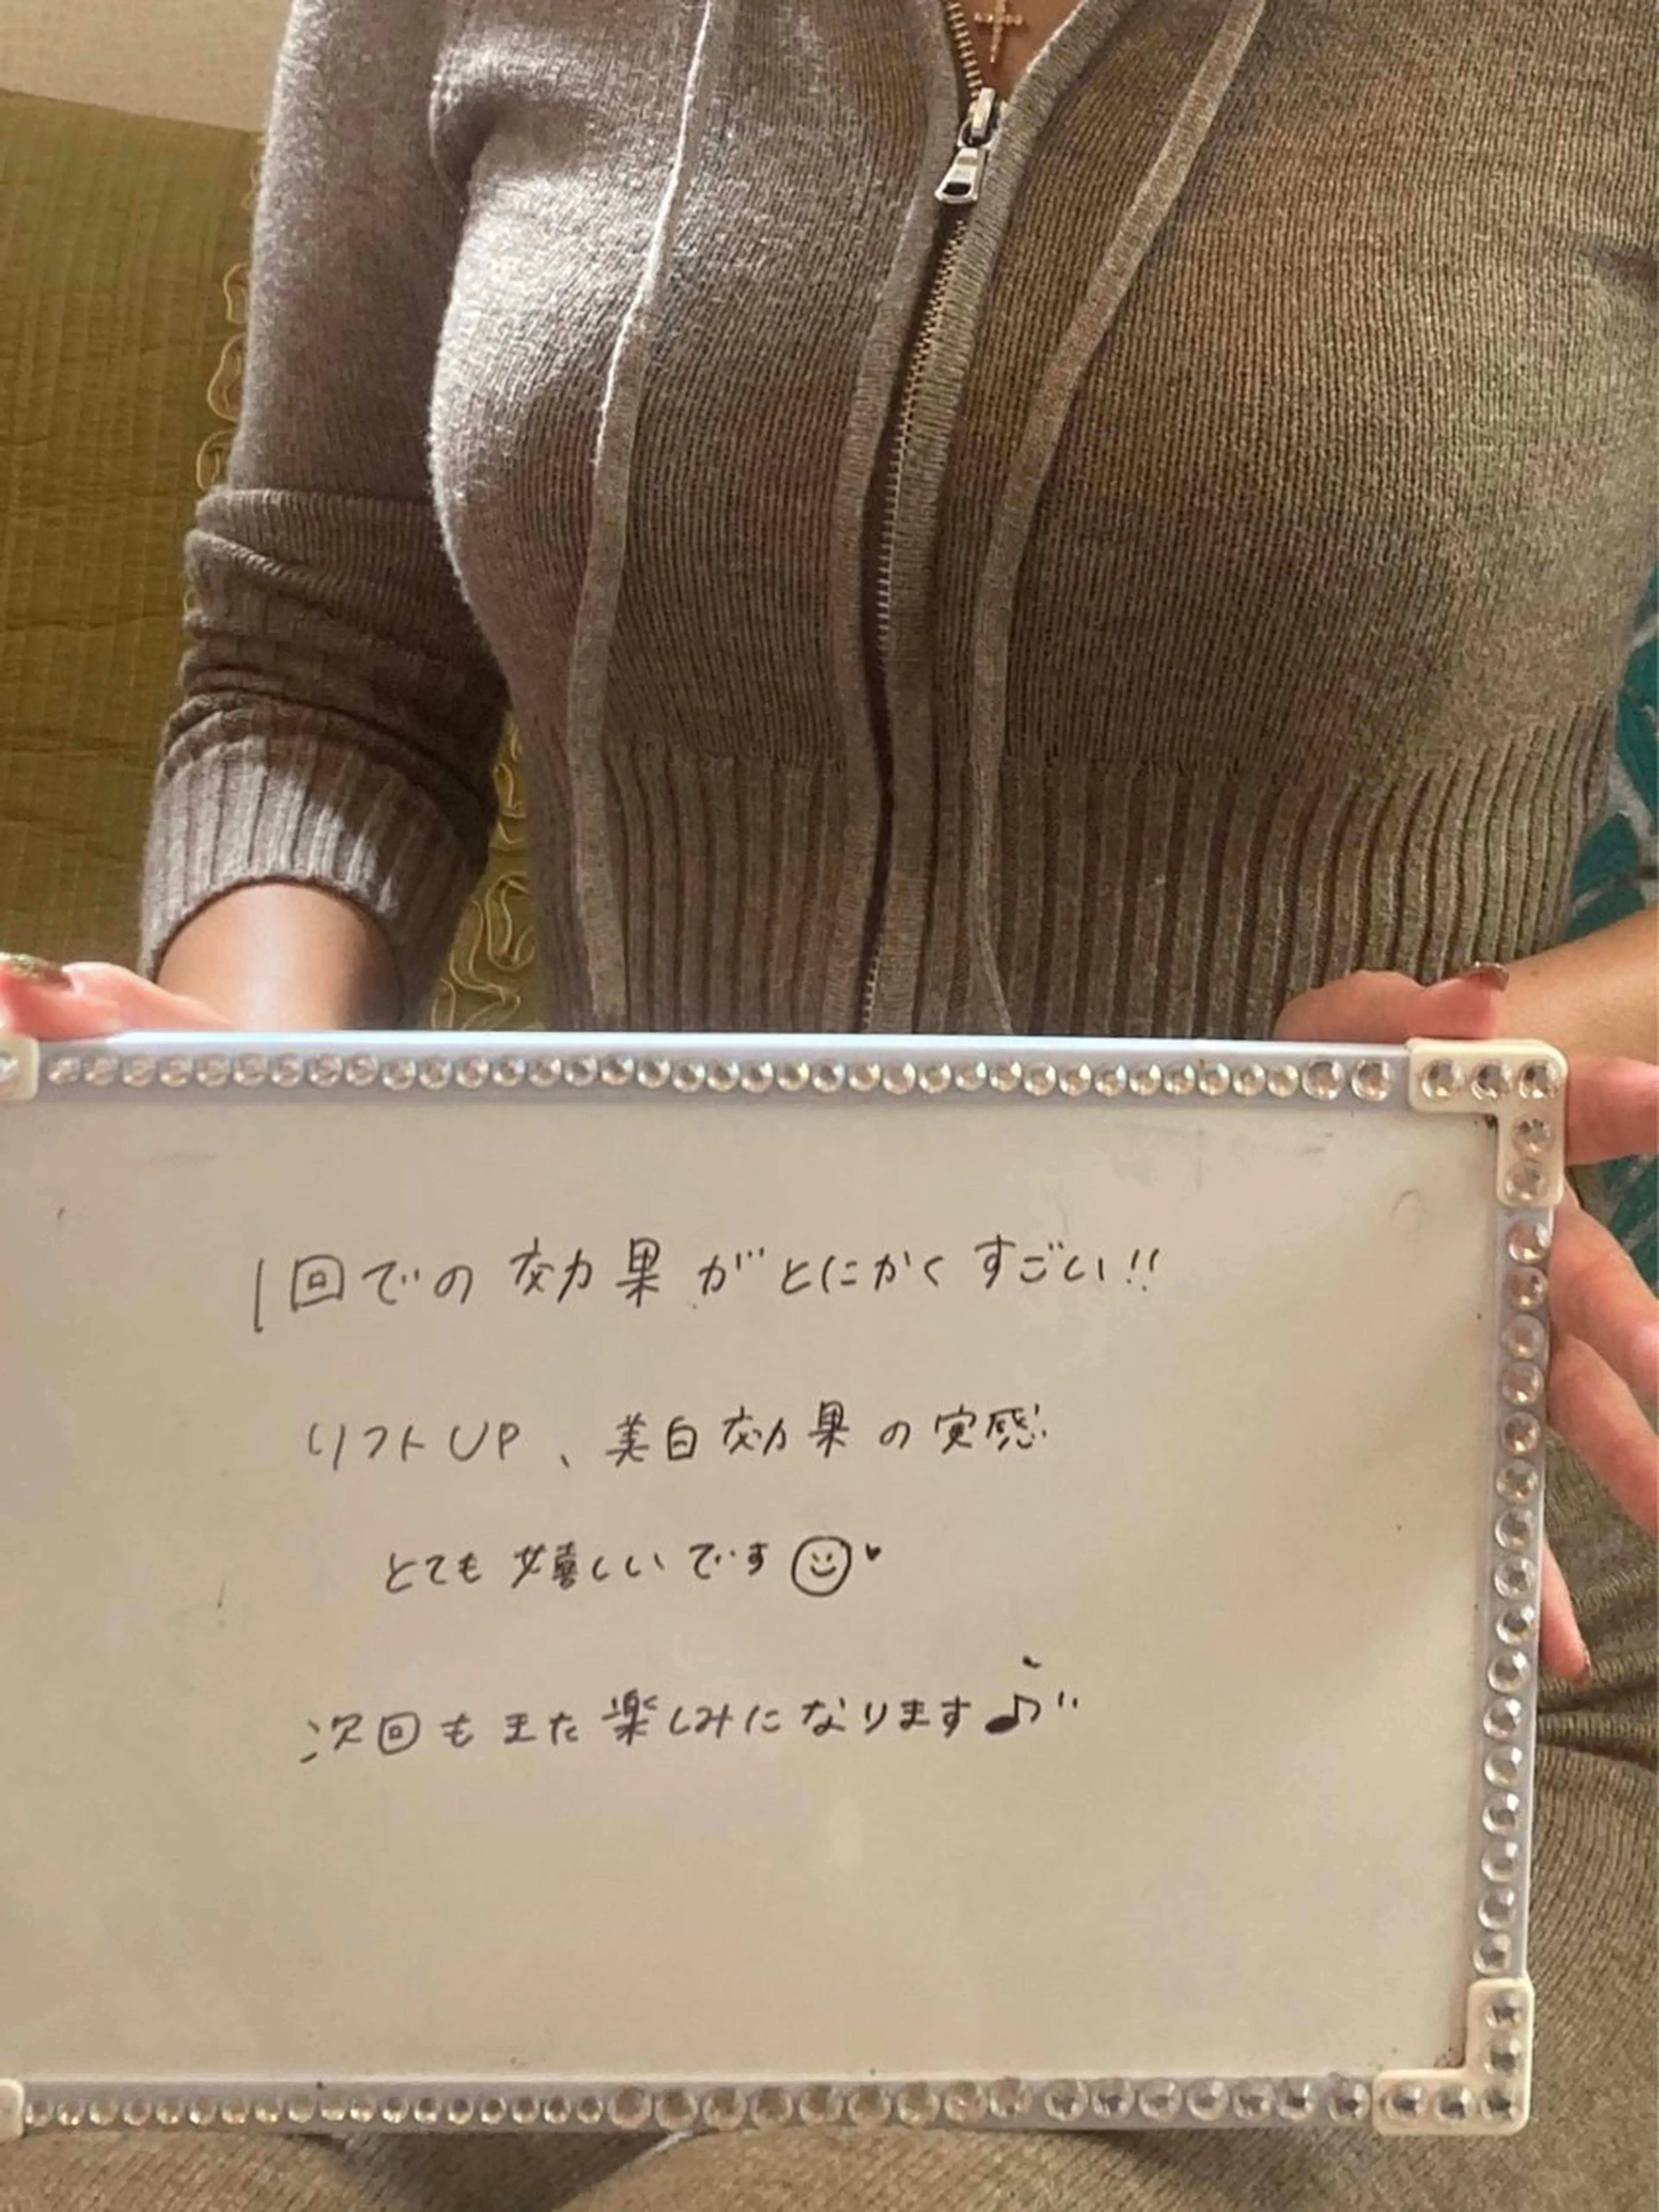 1回での効果がとにかくすごい!!
リフトUP、美白効果の実感
とても嬉しいです☺♥
次回もまた楽しみになります♪"